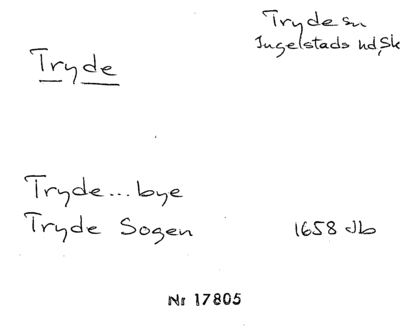 Tryde sn
Ingelstads hd, Sk
Tryde
Tryde...bye
Tryde Sogen 1658 Jb
Nr 17805